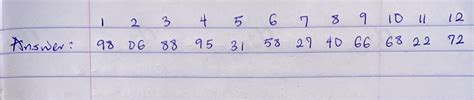 1 2 3 4 5 6 7 8 9 10 11 12
Answer: 98 06 88 95 31 58 29 40 66 68 22 72